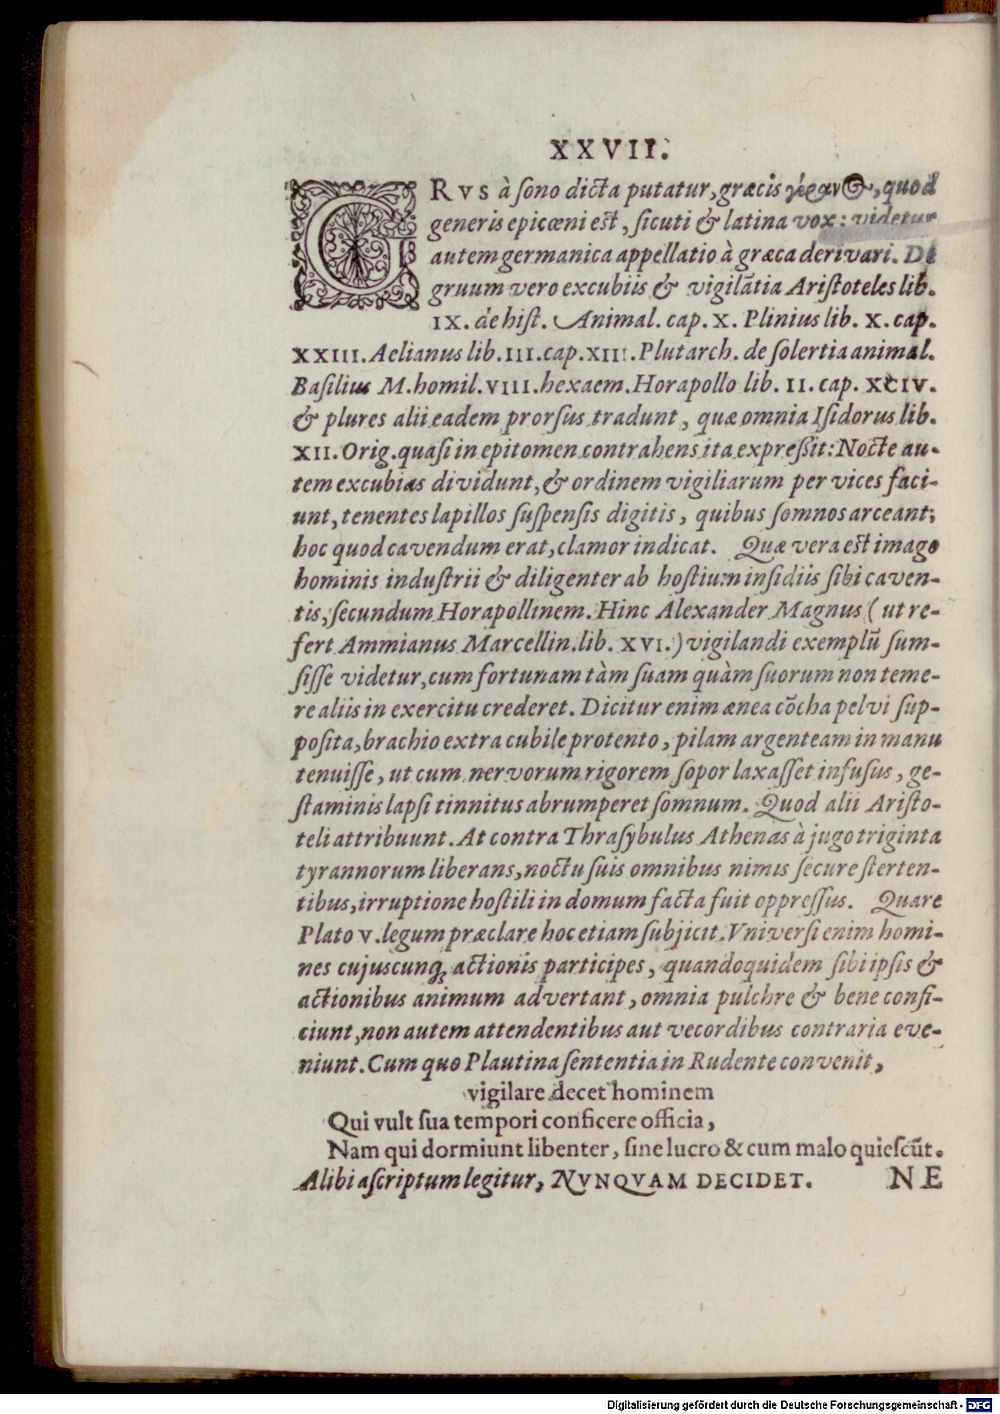 XXVII.
GRVS à ſono dicta putatur, græcis γέρανος, quod
generis epicœni est, ſicuti & latina vox: videtur
autem germanica appellatio à græca derivari. De
gruum vero excubiis & vigilãtia Ariſtoteles lib.
IX. de hiſt. Animal. cap. X. Plinius lib. X. cap.
XXIII. Aelianus lib. III. cap. XIII. Plutarch. de ſolertia animal.
Baſilius M. homil. VIII. hexaem. Horapollo lib. II. cap. XCIV.
& plures alii eadem prorſus tradunt, quæ omnia Iſidorus lib.
XII. Orig. quaſi in epitomen contrahens ita expreſſit: Nocte au-
tem excubias dividunt, & ordinem vigiliarum per vices faci-
unt, tenentes lapillos ſuſpenſis digitis, quibus ſomnos arceant;
hoc quod cavendum erat, clamor indicat. Quæ vera est imago
hominis induſtrii & diligenter ab hoſtium inſidiis ſibi caven-
tis, ſecundum Horapollinem. Hinc Alexander Magnus (ut re-
fert Ammianus Marcellin. lib. XVI.) vigilandi exemplũ ſum-
ſiſſe videtur, cum fortunam tàm ſuam quàm ſuorum non teme-
re aliis in exercitu crederet. Dicitur enim ænea cõcha pelvi ſup-
poſita, brachio extra cubile protento, pilam argenteam in manu
tenuiſſe, ut cum nervorum rigorem ſopor laxaſſet infuſus, ge-
ſtaminis lapſi tinnitus abrumperet ſomnum. Quod alii Ariſto-
teli attribuunt. At contra Thraſybulus Athenas à jugo triginta
tyrannorum liberans, noctu ſuis omnibus nimis ſecure ſterten-
tibus, irruptione hoſtili in domum facta fuit oppreſſus. Quare
Plato V. legum præclare hoc etiam ſubjicit. Vniverſi enim homi-
nes cujuscunq; actionis participes, quandoquidem ſibi ipſis &
actionibus animum advertant, omnia pulchre & bene confi-
ciunt, non autem attendentibus aut vecordibus contraria eve-
niunt. Cum quo Plautina ſententia in Rudente convenit,
vigilare decet hominem
Qui vult ſua tempori conficere officia,
Nam qui dormiunt libenter, ſine lucro & cum malo quieſcũt.
Alibi aſcriptum legitur, NVNQVAM DECIDET. NE
Digitalisierung gefördert durch die Deutsche Forschungsgemeinschaft - DFG